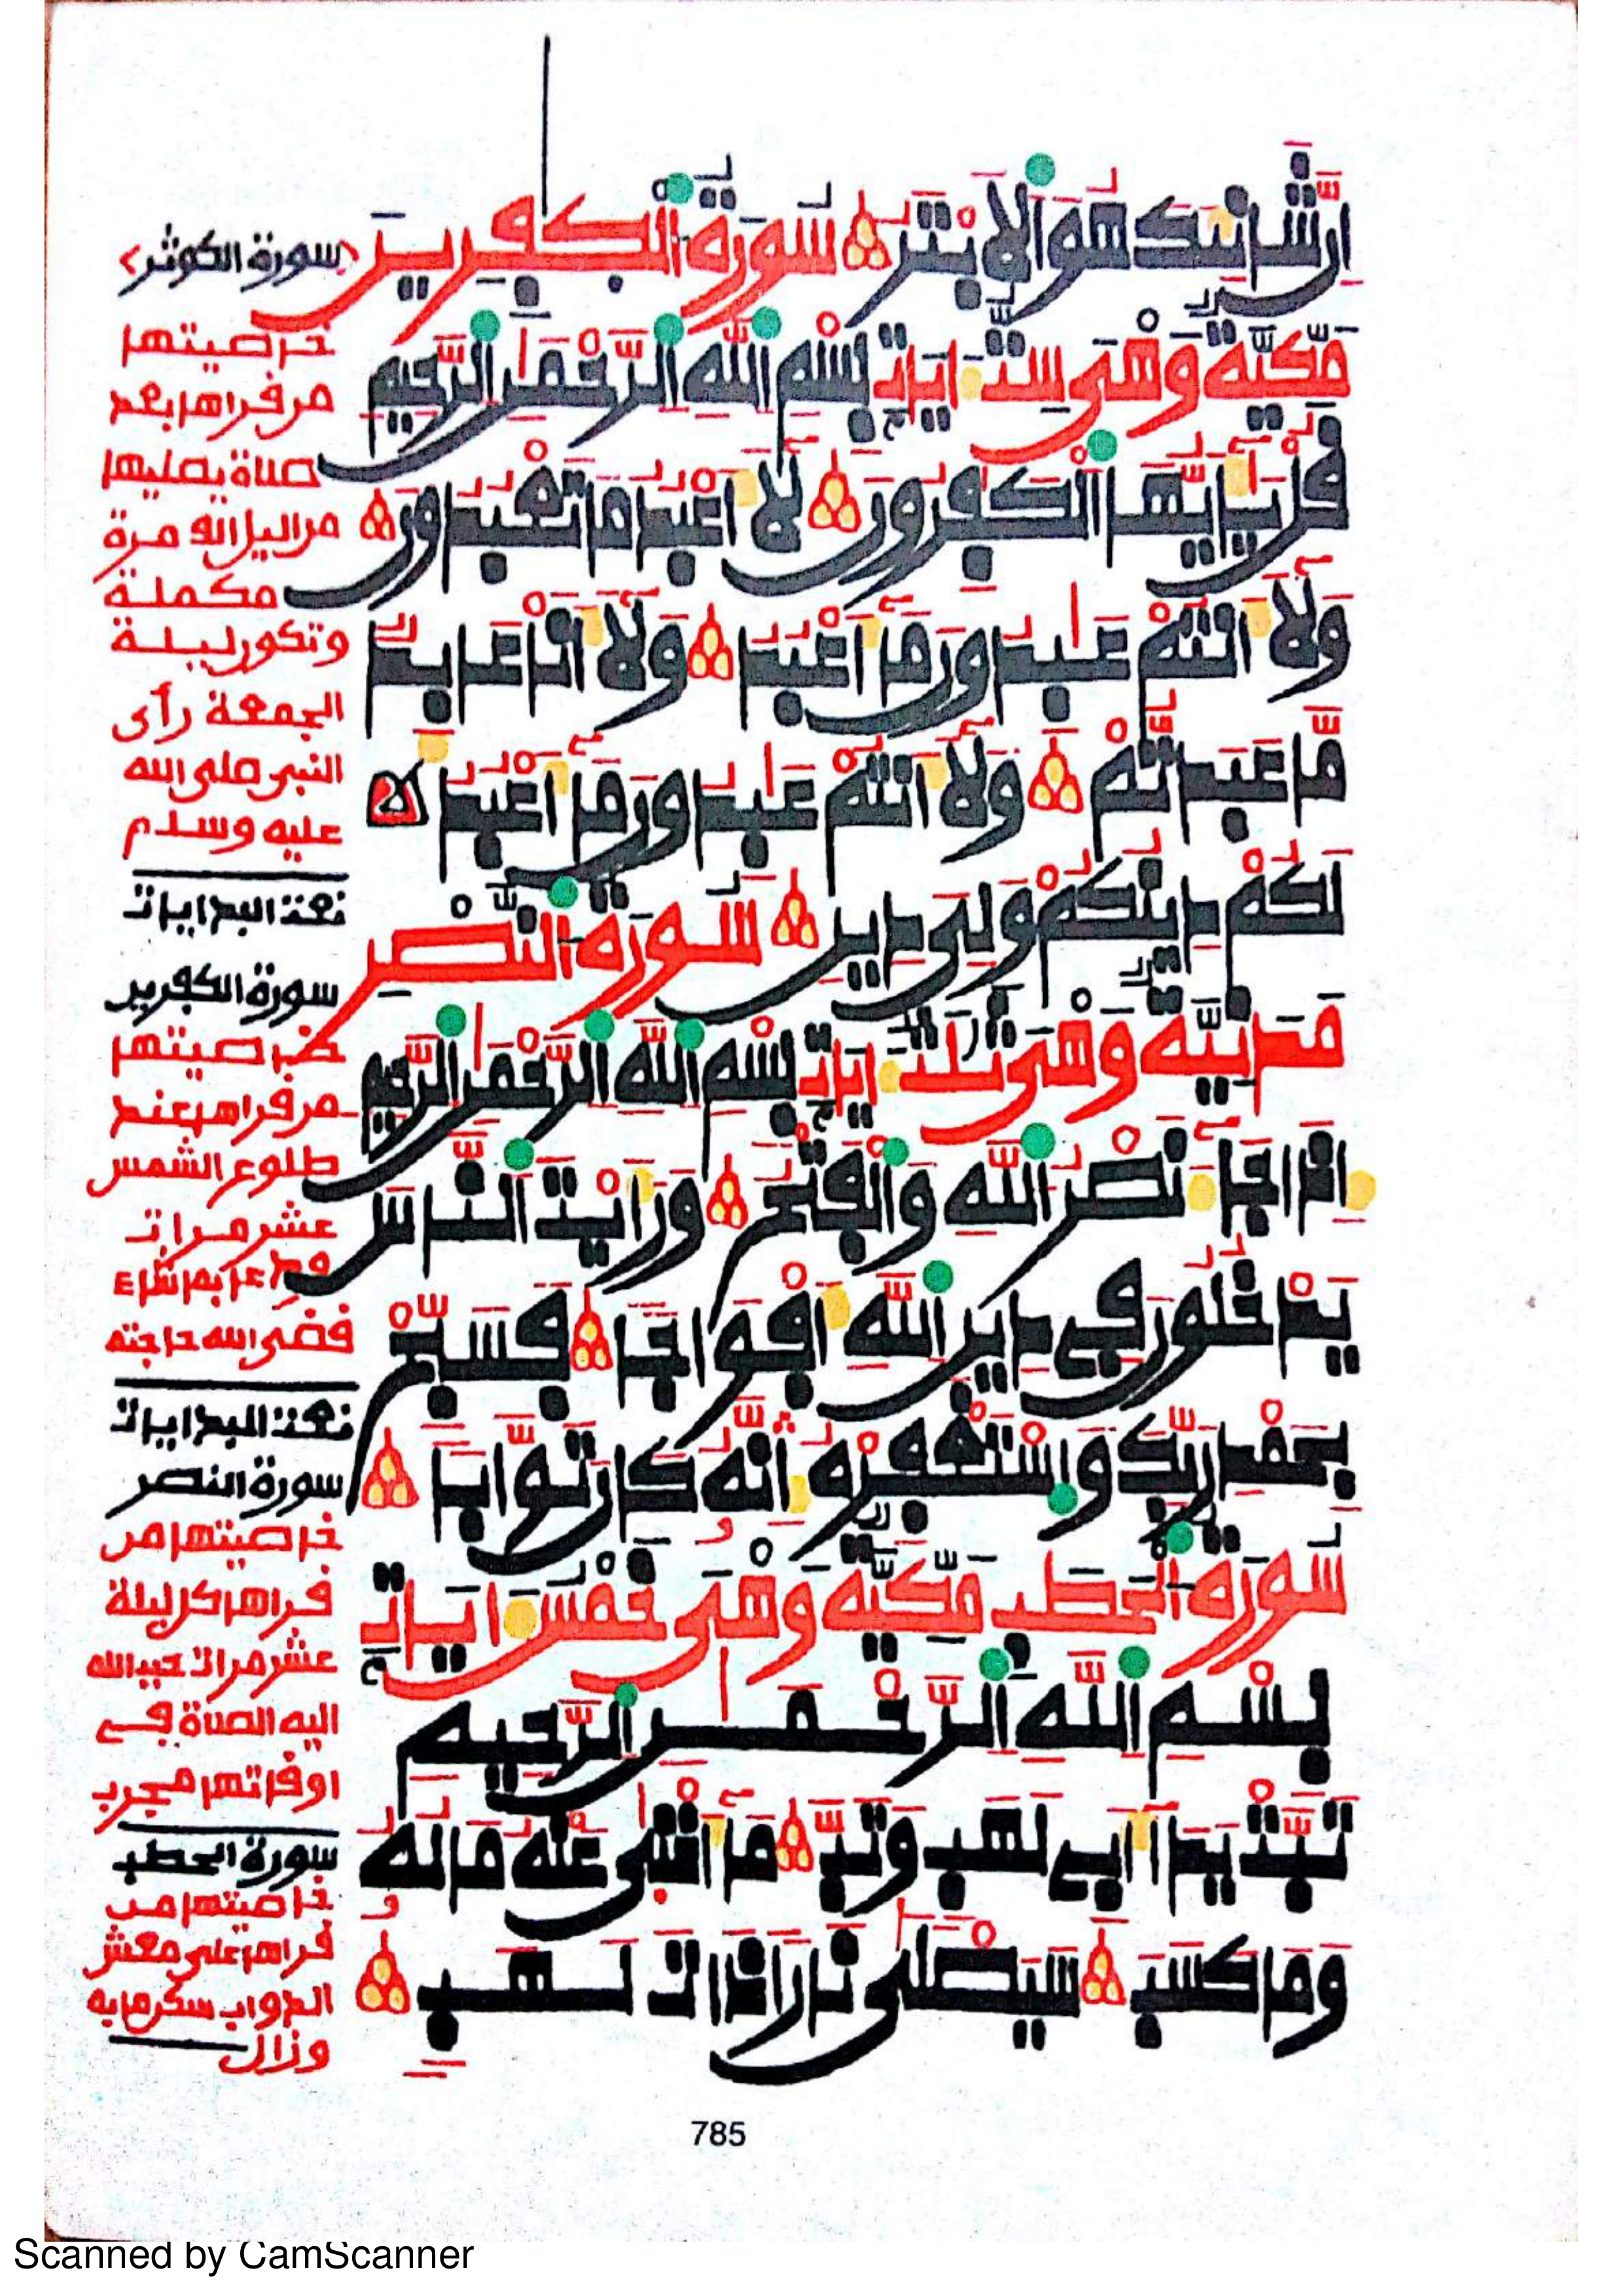 إِنَّ شَانِئَكَ هُوَ اَلَابْتَرُ سُورَةُ اَلْكٰفِرِينَ
مَكِّيَّةٌ وَهْىَ سِتُّ ءَايَاتٍ بِسْمِ اِللَّهِ اِلرَّحْمَٰنِ اِلرَّحِيمِ
قُلْ يَٰأَيُّهَا اَلْكَٰفِرُونَ لَا أَعْبُدُ مَا تَعْبُدُونَ
وَلَا أَنتُمْ عَٰبِدُونَ مَا أَعْبُدُ وَلَا أَنَا عَابِدٌ
مَّا عَبَدتُّمْ وَلَا أَنتُمْ عَٰبِدُونَ مَا أَعْبُدُ
لَكُمْ دِينُكُمْ وَلِىَ دِينِ سُورَةُ اَلنَّصْرِ
مَدَنِيَّةٌ وَهْىَ ثَلَٰثُ ءَايَاتٍ بِسْمِ اِللَّهِ اِلرَّحْمَٰنِ اِلرَّحِيمِ
إِذَا جَاءَ نَصْرُ اُللَّهِ وَالْفَتْحُ وَرَأَيْتَ اَلنَّاسَ
يَدْخُلُونَ فِي دِينِ اِللَّهِ أَفْوَاجًا فَسَبِّحْ
بِحَمْدِ رَبِّكَ وَاسْتَغْفِرْهُ إِنَّهُ كَانَ تَوَّابًا
سُورَةُ اَلْحَطَبِ مَكِّيَّةٌ وَهْىَ خَمْسُ ءَايَاتٍ
بِسْمِ اِللَّهِ اِلرَّحْمَٰنِ اِلرَّحِيمِ
تَبَّتْ يَدَا أَبِي لَهَبٍ وَتَبَّ مَا أَغْنَىٰ عَنْهُ مَالُهُ
وَمَا كَسَبَ سَيَصْلَىٰ نَارًا ذَاتَ لَهَبٍ
سورة الكوثر
خاصيتها
من قراها بعد
صلاة يصليها
من اليل الف مرة
مكملة
وتكون ليلة
الجمعة رأى
النبي صلى الله
عليه وسلم
سورة الكفرين
خاصيتها
من قراها عند
طلوع الشمس
عشر مرات
ودعا بما شاء
قضى الله حاجته
سورة النصر
خاصيتها من
قراها كل ليلة
عشر مرات حبب الله
اليه الصلاة في
اوقاتها مجرب
سورة الحطب
خاصيتها من
قراها على مغش
الدواب سكن ما به
وزال
785
Scanned by CamScanner